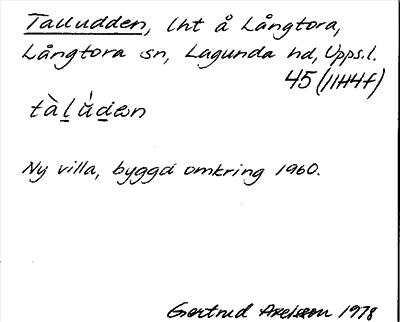 Talludden, lht å Långtora,
Långtora sn, Lagunda hd, Upps.l.
45 (11H4f)
tàlúdən
Ny villa, byggd omkring 1960.
Gertrud Axelsson 1978